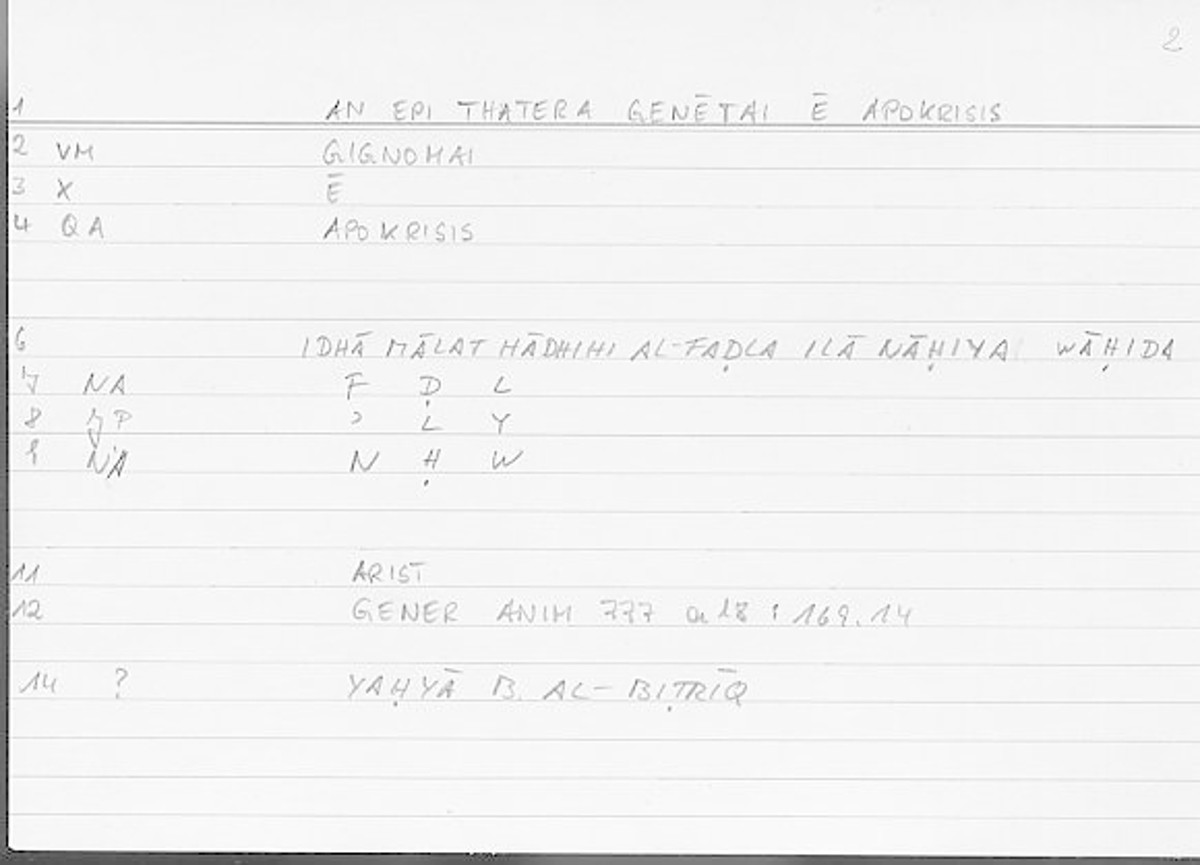 2
1 AN EPI THATERA GENĒTAI Ē APOKRISIS
2 VM GIGNOMAI
3 X Ē
4 QA APOKRISIS
6 IDHĀ MĀLAT HĀDHIHI AL-FAḌLA ILĀ NĀḤIYA WĀḤIDA
7 NA F Ḍ L
8 ɔ L Y
9 NA N Ḥ W
11 ARIST
12 GENER ANIM 777 a 18 : 169.14
14 ? YAḤYĀ B. AL-BIṬRĪQ